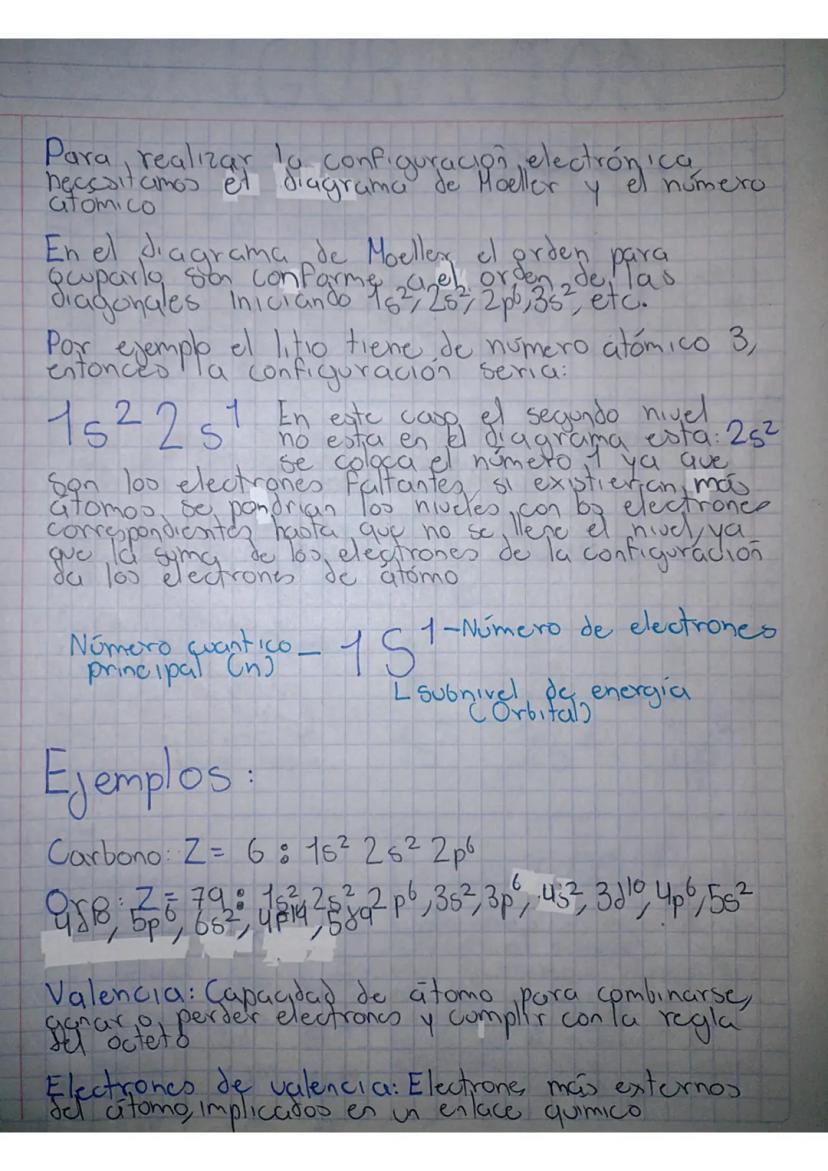 Para realizar la configuración electrónica
necesitamos el diagrama de Moeller y el número
atomico
En el diagrama de Moeller el orden para
ocuparlo son conforme a el orden de las
diagonales iniciando 1s², 2s², 2p⁶, 3s², etc.
Por ejemplo el litio tiene de número atómico 3,
entonces la configuración seria:
1s² 2s¹ En este caso el segundo nivel
no esta en el diagrama esta: 2s²
se coloca el número 1 ya que
son los electrones faltantes, si existieran más
átomos se pondrian los niveles con los electrones
correspondientes hasta que no se llene el nivel, ya
que la suma de los electrones de la configuración
da los electrones de átomo
Número cuantico principal (n) – 1S¹ – Número de electrones
Subnivel de energía
(Orbital)
Ejemplos:
Carbono: Z = 6 : 1s² 2s² 2p⁶
Z = 79 : 1s², 2s², 2p⁶, 3s², 3p⁶, 4s², 3d¹⁰, 4p⁶, 5s²
5p⁶, 6s²,
Valencia: Capacidad de átomo para combinarse,
ganar o perder electrones y cumplir con la regla
del octeto
Electrones de valencia: Electrones más externos
del átomo, implicados en un enlace quimico